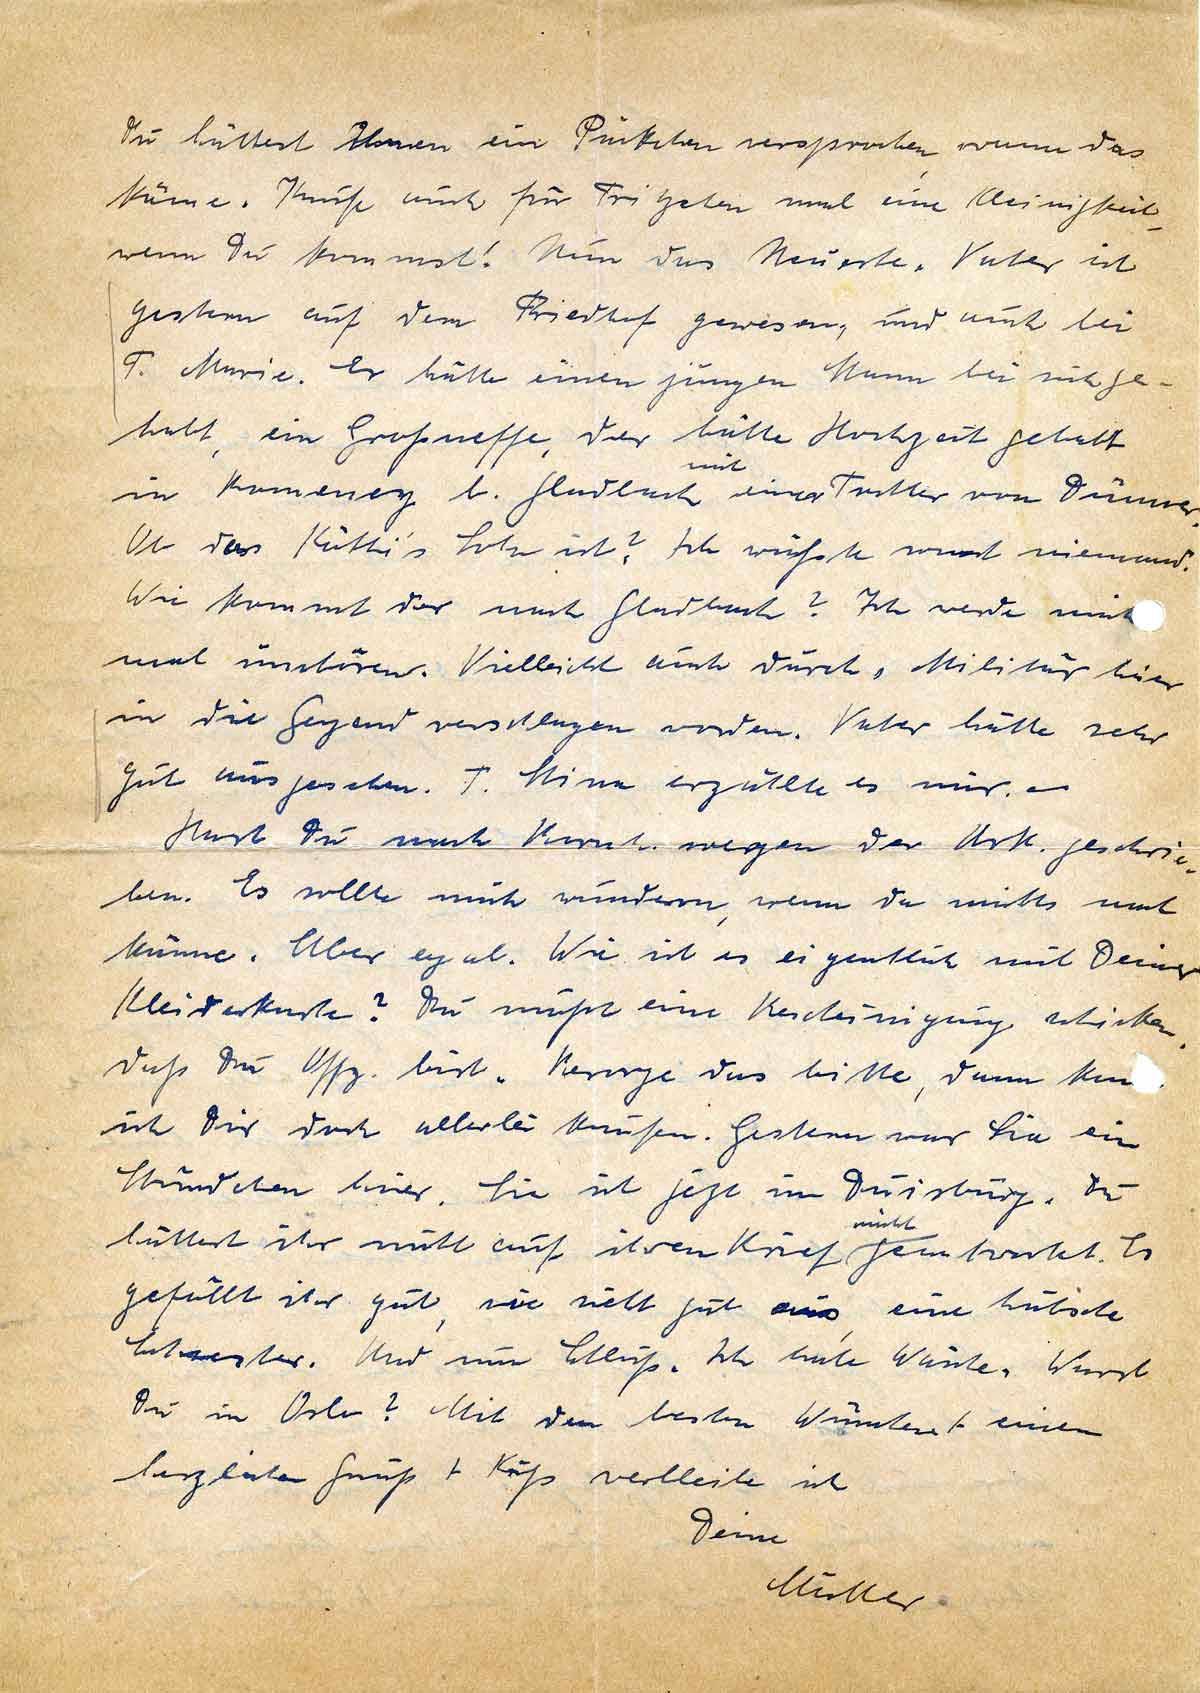 Du hättest Ihnen ein Päckchen versprochen, wenn das
käme. Kaufe auch für Fritzchen mal eine Kleinigkeit,
wenn Du kommst! Nun das Neueste. Vater ist
gestern auf dem Friedhof gewesen, und auch bei
T. Marie. Er hätte einen jungen Mann bei sich ge-
habt, ein Großneffe, der hätte Hochzeit gehabt
in b. Gladbach mit einer Tochter von
Ob das Käthi's Sohn ist? Ich wüßte sonst niemand.
Wie kommt der nach Gladbach? Ich werde mich
mal umhören. Vielleicht auch durch's Militär hier
in die Gegend verschlagen worden. Vater hätte sehr
gut ausgesehen. T. Stina erzählte es mir. –
Hast Du nach wegen der geschrie-
ben. Es sollte mich wundern, wenn da nichts nach
käme. Aber egal. Wie ist es eigentlich mit Deiner
Kleiderkarte? Du mußt eine Bescheinigung schicken,
daß Du Offz. bist. Besorge das bitte, dann
ich Dir doch allerlei kaufen. Gestern war Sia ein
Stündchen hier. Sie ist jetzt in Duisburg. Du
hättest ihr nicht auf ihren Brief geantwortet. Es
gefällt ihr gut, sie sieht gut aus, eine hübsche
Schwester. Und nun Schluß. Ich habe Wäsche. Warst
Du in Oslo? Mit den besten Wünschen + einen
herzlichen Gruß + Kuß verbleibe ich
Deine
Mutter